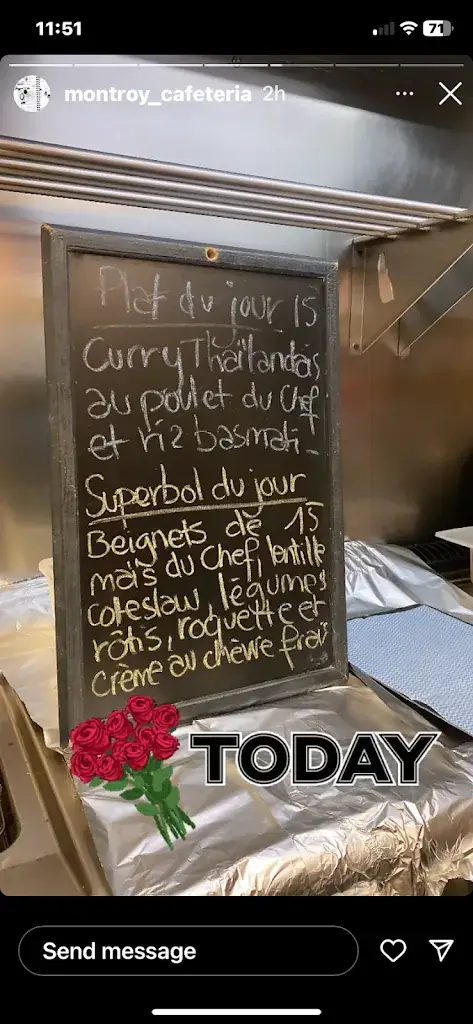 11:51
71
montroy_cafeteria 2h
Plat du jour 15
Curry Thaïlandais
au poulet du Chef
et riz basmati-
Superbol du jour
Beignets de 15
maïs du Chef, lentille
coleslaw, légumes
rôtis, roquette et
crème au chèvre frais
TODAY
Send message